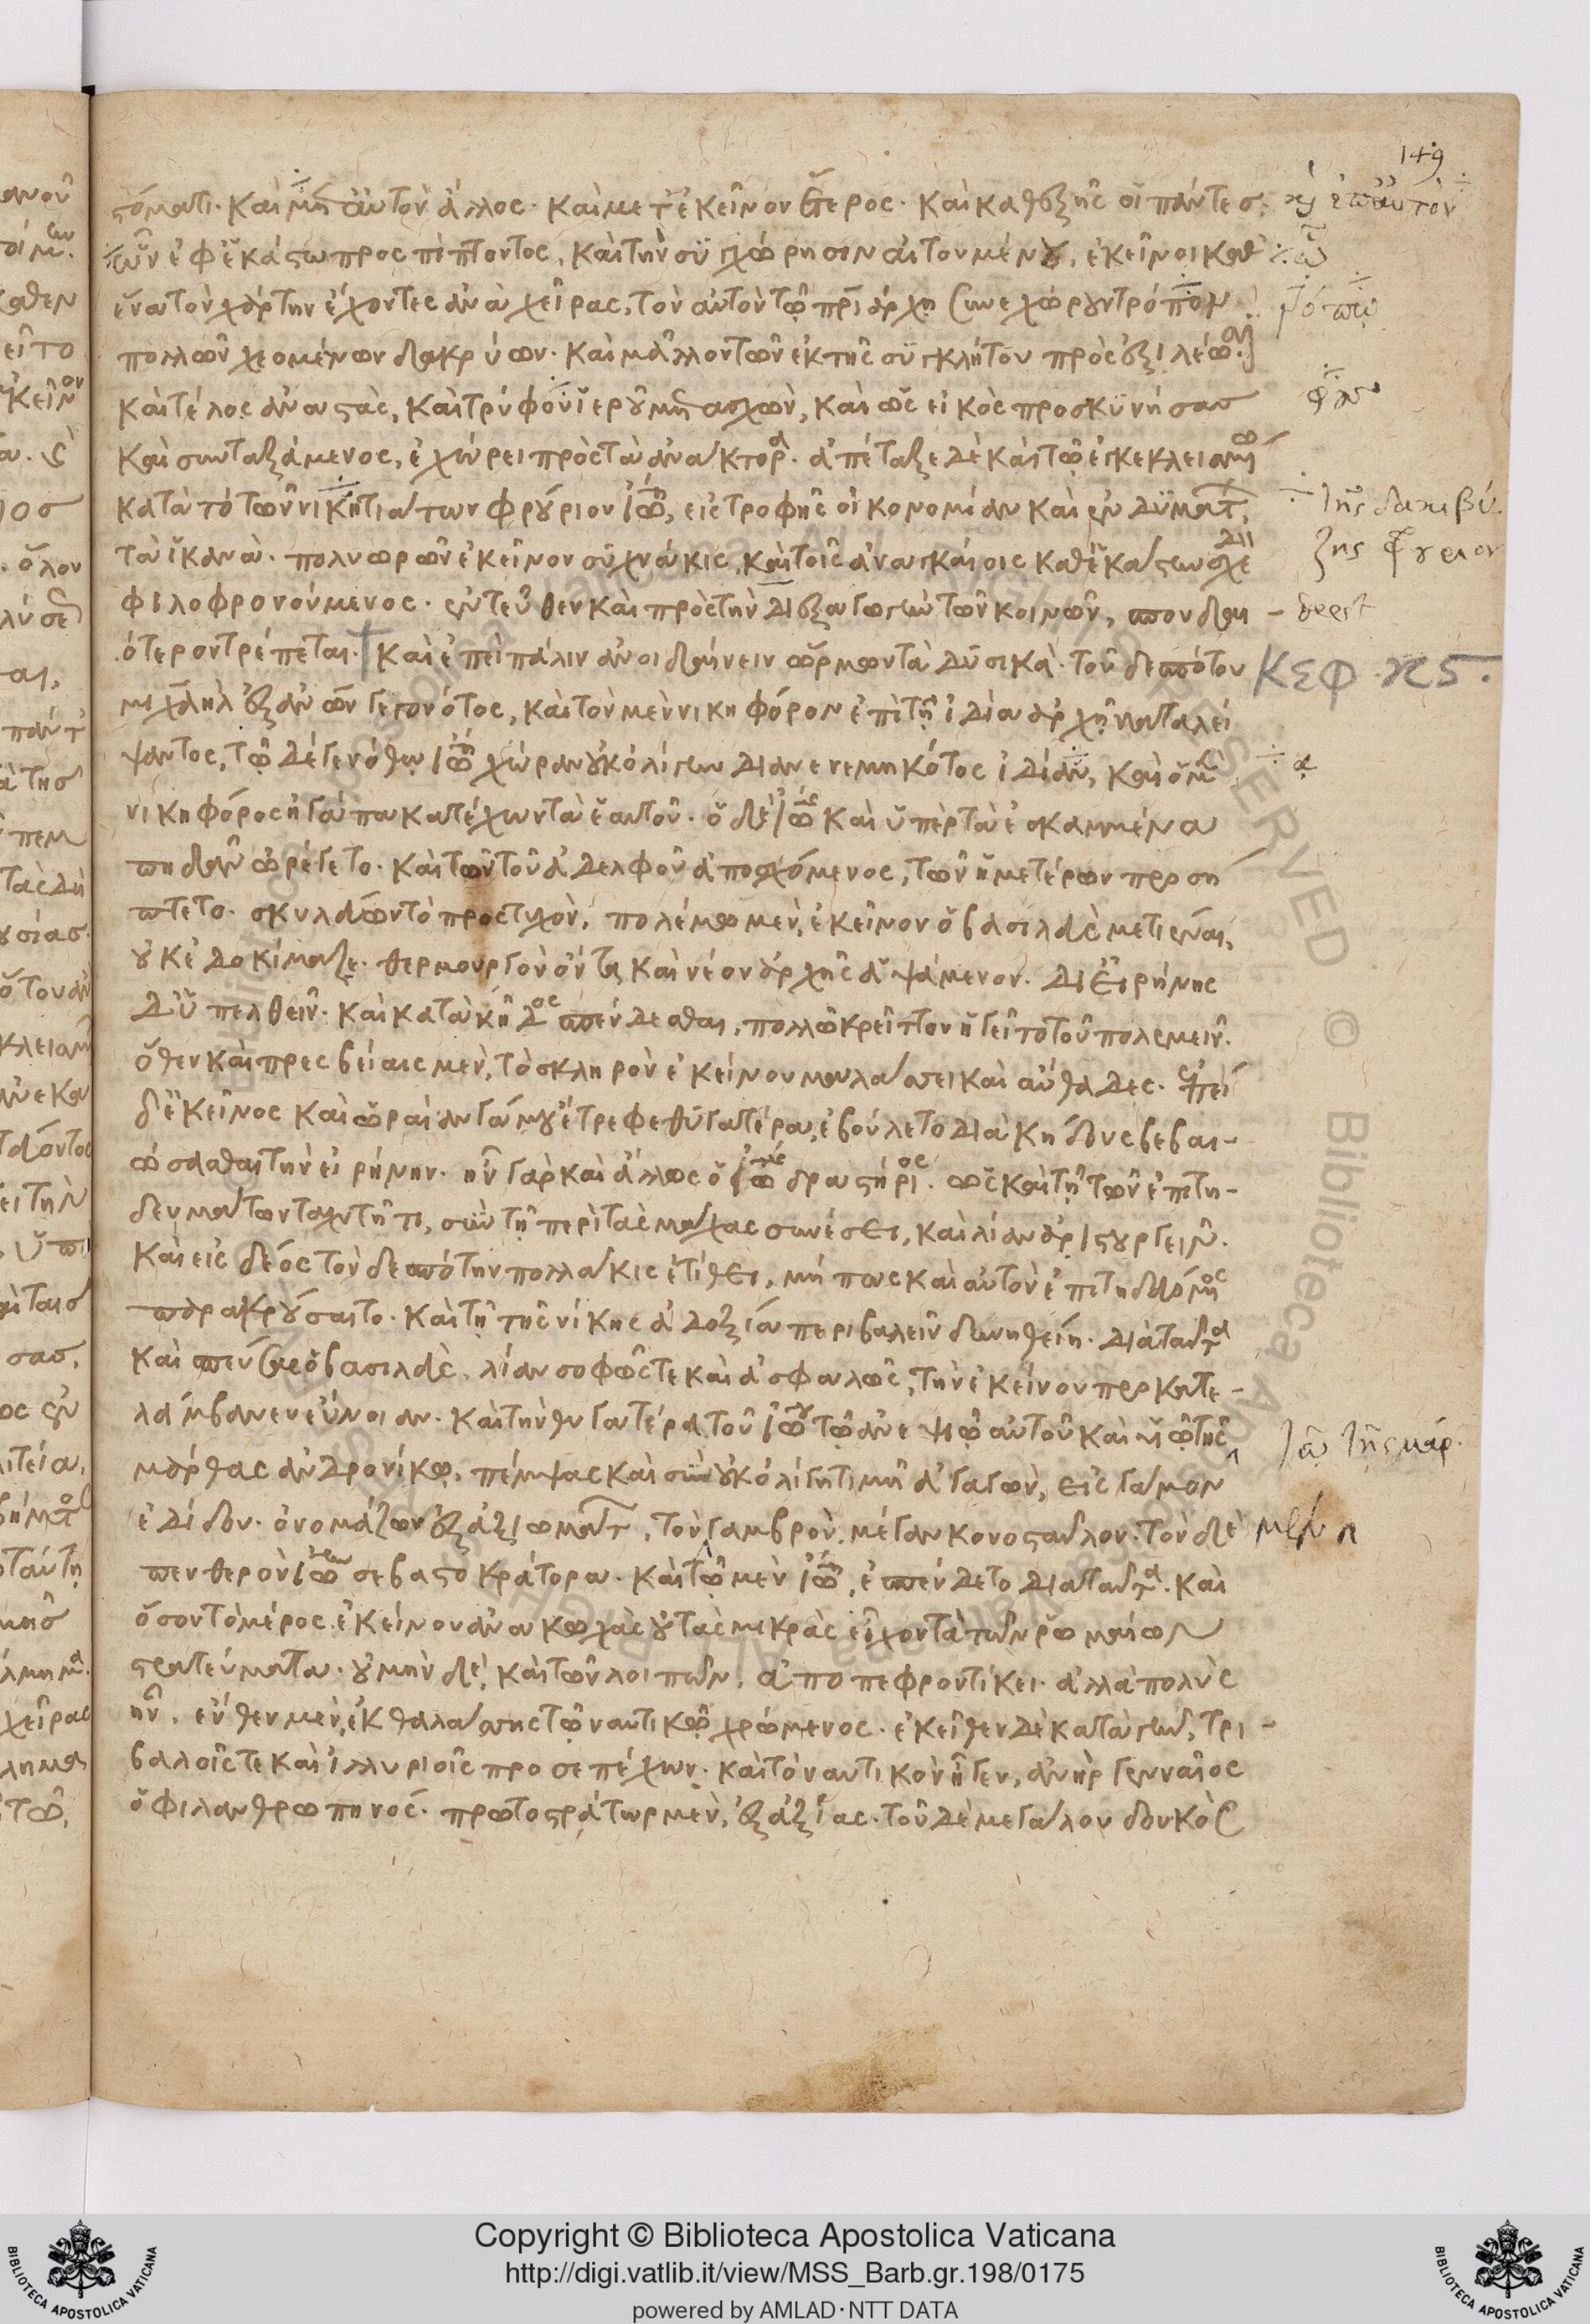 149
στόματι. καὶ μετ' αὐτὸν ἄλλος. καὶ μετ' ἐκεῖνον ἕτερος. καὶ καθεξῆς οἱ πάντες.
ὧν ἐφ' ἑκάστω προσπίπτοντος, καὶ τὴν συγχώρησιν αἰτουμένου, ἐκεῖνοι καθ'
ἕνα τὸν χάρτην ἔχοντες ἀνὰ χεῖρας, τὸν αὐτὸν τῷ πατριάρχῃ συνεχώρουν τρόπον
πολλῶν χεομένων δακρύων. καὶ μᾶλλον τῶν ἐκ τῆς συγκλήτου πρὸς ἐξιλέωσιν
καὶ τέλος ἀναστὰς, καὶ τρυφου ἱεροῦ μετασχὼν, καὶ ὡς εἰκὸς προσκυνήσας
καὶ συνταξάμενος, ἐχώρει πρὸς τὰ ἀνάκτορα. ἀπέταξε δὲ καὶ τῷ ἐγκεκλεισμένω
κατὰ τὸ τῶν νικητιάτων φρούριον ἰωάννη, εἰς τροφῆς οἰκονομίαν καὶ ἐνδύματος,
τὰ ἱκανὰ. πολυωρῶν ἐκεῖνον συχνάκις, καὶ τοῖς ἀναγκαίοις καθ' ἑκάστην σχεδὸν
φιλοφρονούμενος. ἐντεῦθεν καὶ πρὸς τὴν διεξαγωγὴν τῶν κοινῶν, σπουδαι
ότερον τρέπεται. καὶ ἐπεὶ πάλιν ἀνοιδαίνειν ὥρμων τὰ δυσικὰ. τοῦ δεσπότου
μιχαὴλ ἐξ ἀνῶν γεγονότος, καὶ τὸν μὲν νικηφόρον ἐπὶ τῇ ἰδία ἀρχῇ καταλεί
ψαντος, τῷ δὲ γε νόθω ἰωάννη χώραν οὐκ ὀλίγην διανενεμηκότος ἰδίαν, καὶ ὁ μὲν
νικηφόρος ἠγάπα κατέχων τὰ ἑαυτοῦ. ὁ δὲ ἰωάννης καὶ ὑπὲρ τὰ ἐσκαμμένα
πηδᾶν ὠρέγετο. καὶ τῶν τοῦ ἀδελφοῦ ἀποσχόμενος, τῶν ἡμετέρων παρση
πτετο. σκυλεύων τὸ προστυχὸν, πολέμω μὲν, ἐκεῖνον ὁ βασιλεὺς μετιέναι,
οὐκ ἐδοκίμαζε. θερμουργὸν ὄντα καὶ νέον ἀρχῆς ἁψάμενον. δι' εἰρήνης
δ' ὑπελθεῖν. καὶ κατὰ κῆδος σπένδεσθαι, πολλῶ κρεῖττον ἡγεῖτο τοῦ πολεμεῖν.
ὅθεν καὶ πρεσβείαις μὲν, τὸ σκληρὸν ἐκείνου μαλάσσει καὶ αὔθαδες. ἐπεὶ
δ' ἐκεῖνος καὶ ὡραίαν γάμου ἔτρεφε θυγατέρα, ἐβούλετο διὰ κήδους βεβαι-
ώσασθαι τὴν εἰρήνην. ἦν γὰρ καὶ ἄλλως ὁ ἰωάννης δραστήριος. ὡς καὶ τῇ τῶν ἐπιτη-
δευμάτων ταχυτῆτι, σὺν τῇ περὶ τὰς μάχας συνέσει, καὶ λίαν ἀριστουργεῖν.
καὶ εἰς δέος τὸν δεσπότην πολλάκις ἐτίθει, μήπως καὶ αὐτὸν ἐπιτηδευόμενος
παρακρούσαιτο. καὶ τῇ τῆς νίκης ἀδοξία περιβαλεῖν δυνηθείη. διὰ ταῦτα
καὶ σπένδεται ὁ βασιλεὺς. λίαν σοφῶς τε καὶ ἀσφαλῶς, τὴν ἐκείνου παρκατε-
λάμβανεν εὔνοιαν. καὶ τὴν θυγατέρα τοῦ ἰωάννου τῷ ἀνεψιῷ αὐτοῦ καὶ υἱῷ τῆς
μάρθας ἀνδρονίκω, πέμψας καὶ σὺν οὐκ ὀλίγῃ τιμῇ ἀγαγὼν, εἰς γάμον
ἐδίδου. ὀνομάζων ἐξ ἀξιώματος, τὸν γαμβρὸν, μέγαν κονοσταῦλον. τὸν δὲ
πενθερὸν ἰωάννην σεβαστοκράτορα. καὶ τῷ μὲν ἰωάννη, ἐσπένδετο διὰ ταῦτα. καὶ
ὅσον τὸ μέρος ἐκείνου ἀνακωχὰς οὐ τὰς μικρὰς εἶχον τὰ τῶν ῥωμαίων
στρατεύματα. οὐ μὴν δὲ, καὶ τῶν λοιπῶν, ἀποπεφροντίκει. ἀλλὰ πολὺς
ἦν. ἔνθεν μὲν, ἐκ θαλάσσης τῷ ναυτικῷ χρώμενος. ἐκεῖθεν δὲ κατὰ γῆν, τρι-
βαλοῖς τε καὶ ἰλλυριοῖς προσεπέχων. καὶ τὸ ναυτικὸν ἦγεν, ἀνὴρ γενναῖος
ὁ φιλανθρωπηνός. πρωτοστράτωρ μὲν, ἐξ ἀξίας. τοῦ δὲ μεγάλου δουκὸς
deest
ΚΕΦ. κς.
Copyright © Biblioteca Apostolica Vaticana
http://digi.vatlib.it/view/MSS_Barb.gr.198/0175
powered by AMLAD·NTT DATA